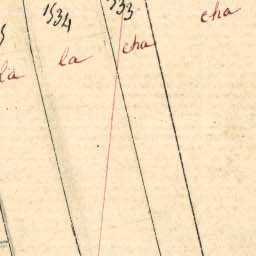 1534
la
cha
cha
la